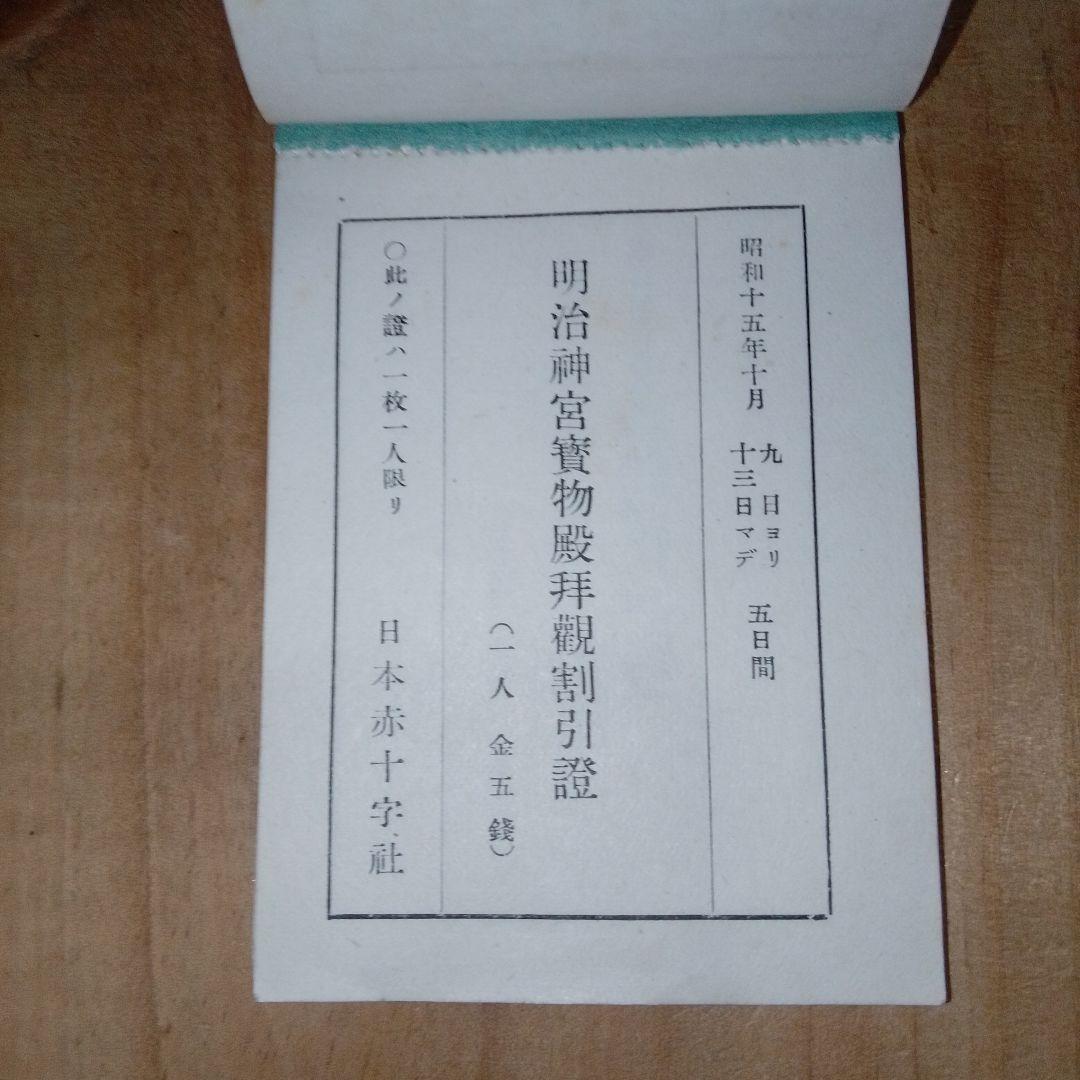 昭和十五年十月 九日ヨリ 十三日マデ 五日間
明治神宮寶物殿拜觀割引證
(一人 金五錢)
○此ノ證ハ一枚一人限リ
日本赤十字社